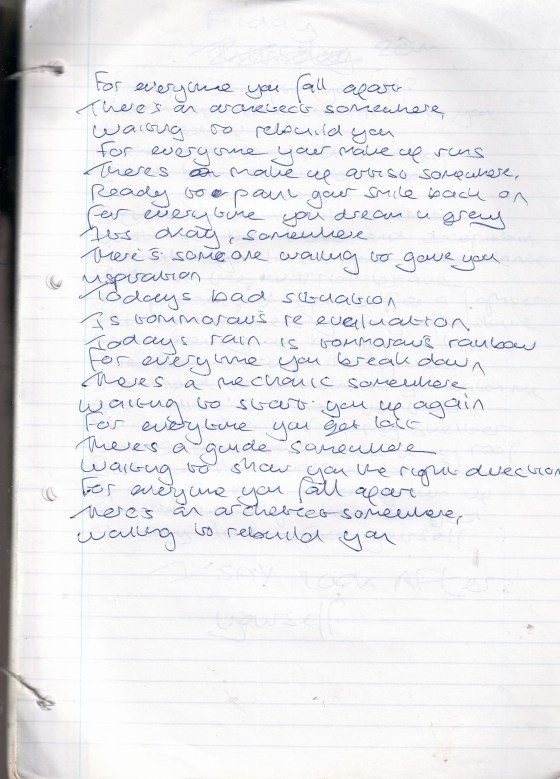 For everytime you fall apart
There's an architect somewhere,
waiting to rebuild you
For everytime your make up runs
Theres a make up artist somewhere,
Ready to paint your smile back on
For everytime you dream in grey
Its okay, somewhere
There's someone waiting to gave you
inspiration
Todays bad situation
Is tommorow's re evaluation
Todays rain is tommorow's rainbow
For everytime you break down
There's a mechanic somewhere
waiting to start you up again
For everytime you get lost
There's a guide somewhere
waiting to show you the right direction
For everytime you fall apart
There's an architect somewhere,
waiting to rebuild you
yourself